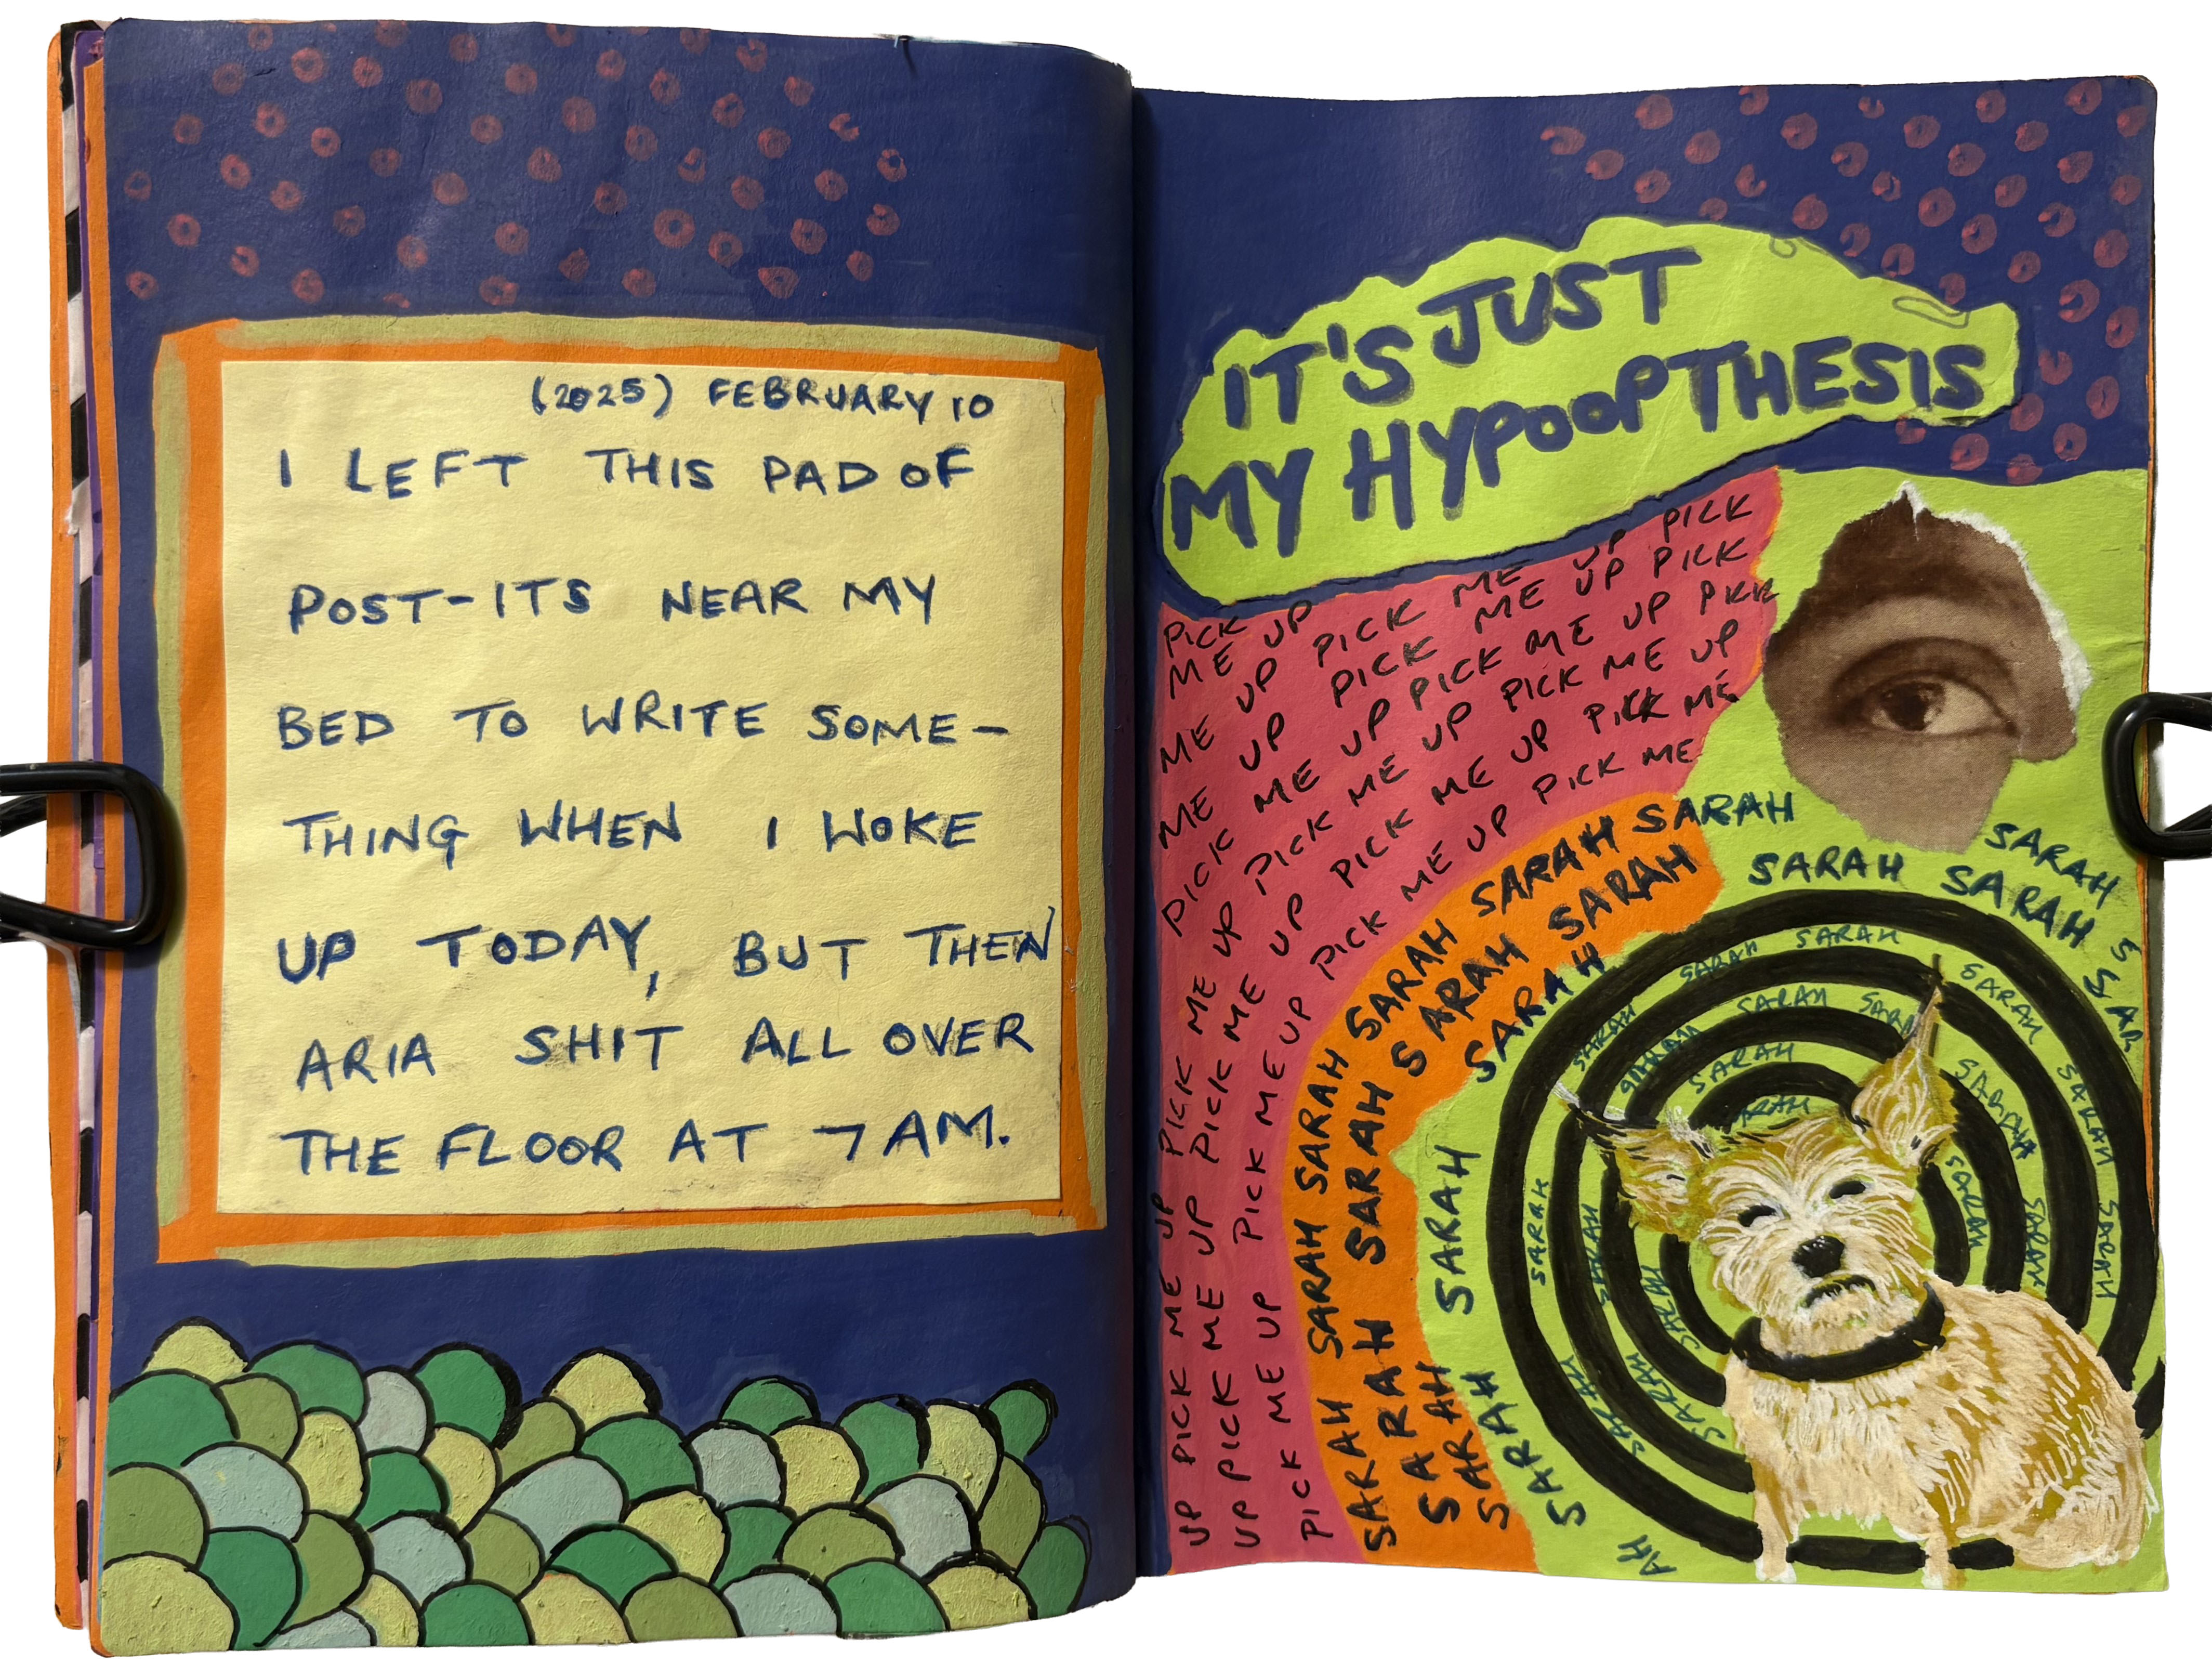 (2025) FEBRUARY 10
I LEFT THIS PAD OF
POST-ITS NEAR MY
BED TO WRITE SOME-
THING WHEN I WOKE
UP TODAY, BUT THEN
ARIA SHIT ALL OVER
THE FLOOR AT 7 AM.
IT'S JUST
MY HYPOOPTHESIS
PICK
ME UP
ME UP PICK ME UP PICK
ME UP PICK ME UP PICK
PICK ME UP PICK ME UP PICK
ME UP PICK ME UP PICK ME UP
PICK ME UP PICK ME UP PICK ME
UP PICK ME UP PICK ME UP PICK ME
UP PICK ME UP PICK ME UP PICK ME UP PICK ME
PICK ME UP PICK ME UP PICK ME UP PICK ME UP PICK ME
SARAH SARAH SARAH SARAH SARAH SARAH SARAH SARAH
SARAH SARAH SARAH SARAH SARAH SARAH
SARAH SARAH
SARAH SARAH
SARAH SARAH SARAH
SARAH SARAH
SARAH SARAH SARAH SARAH SARAH SARAH
SARAH SARAH SARAH SARAH SARAH
SARAH SARAH SARAH
ARAH
AH